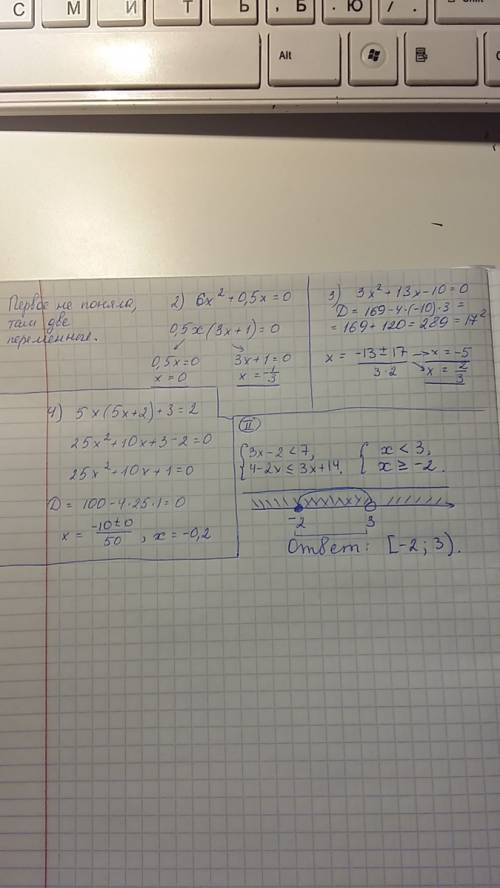 С М И Т Ь , Б . Ю / .
Alt
Первое не поняла,
там две
переменные.
2) 6x² + 0,5x = 0
0,5x (3x + 1) = 0
0,5x = 0 3x + 1 = 0
x = 0 x = -1/3
3) 3x² + 13x - 10 = 0
D = 169 - 4·(-10)·3 =
= 169 + 120 = 289 = 17²
x = (-13 ± 17)/(3·2) → x = -5
→ x = 2/3
4) 5x (5x + 2) + 3 = 2
25x² + 10x + 3 - 2 = 0
25x² + 10x + 1 = 0
D = 100 - 4·25·1 = 0
x = (-10 ± 0)/50 , x = -0,2
II
{3x - 2 < 7, { x < 3,
{4 - 2x ≤ 3x + 14. { x ≥ -2.
-2 3
Ответ: [-2; 3).